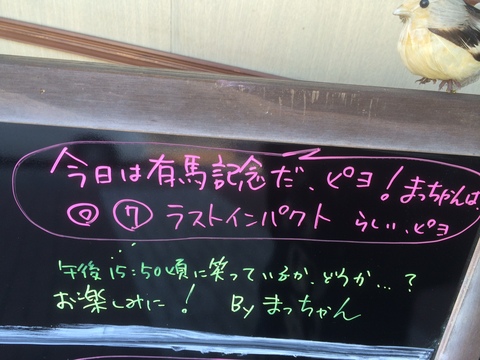 今日は有馬記念だ、ピヨ!まっちゃんは、
◎⑦ラストインパクト らしい、ピヨ
午後15:50頃に笑っているか、どうか…?
お楽しみに! By まっちゃん